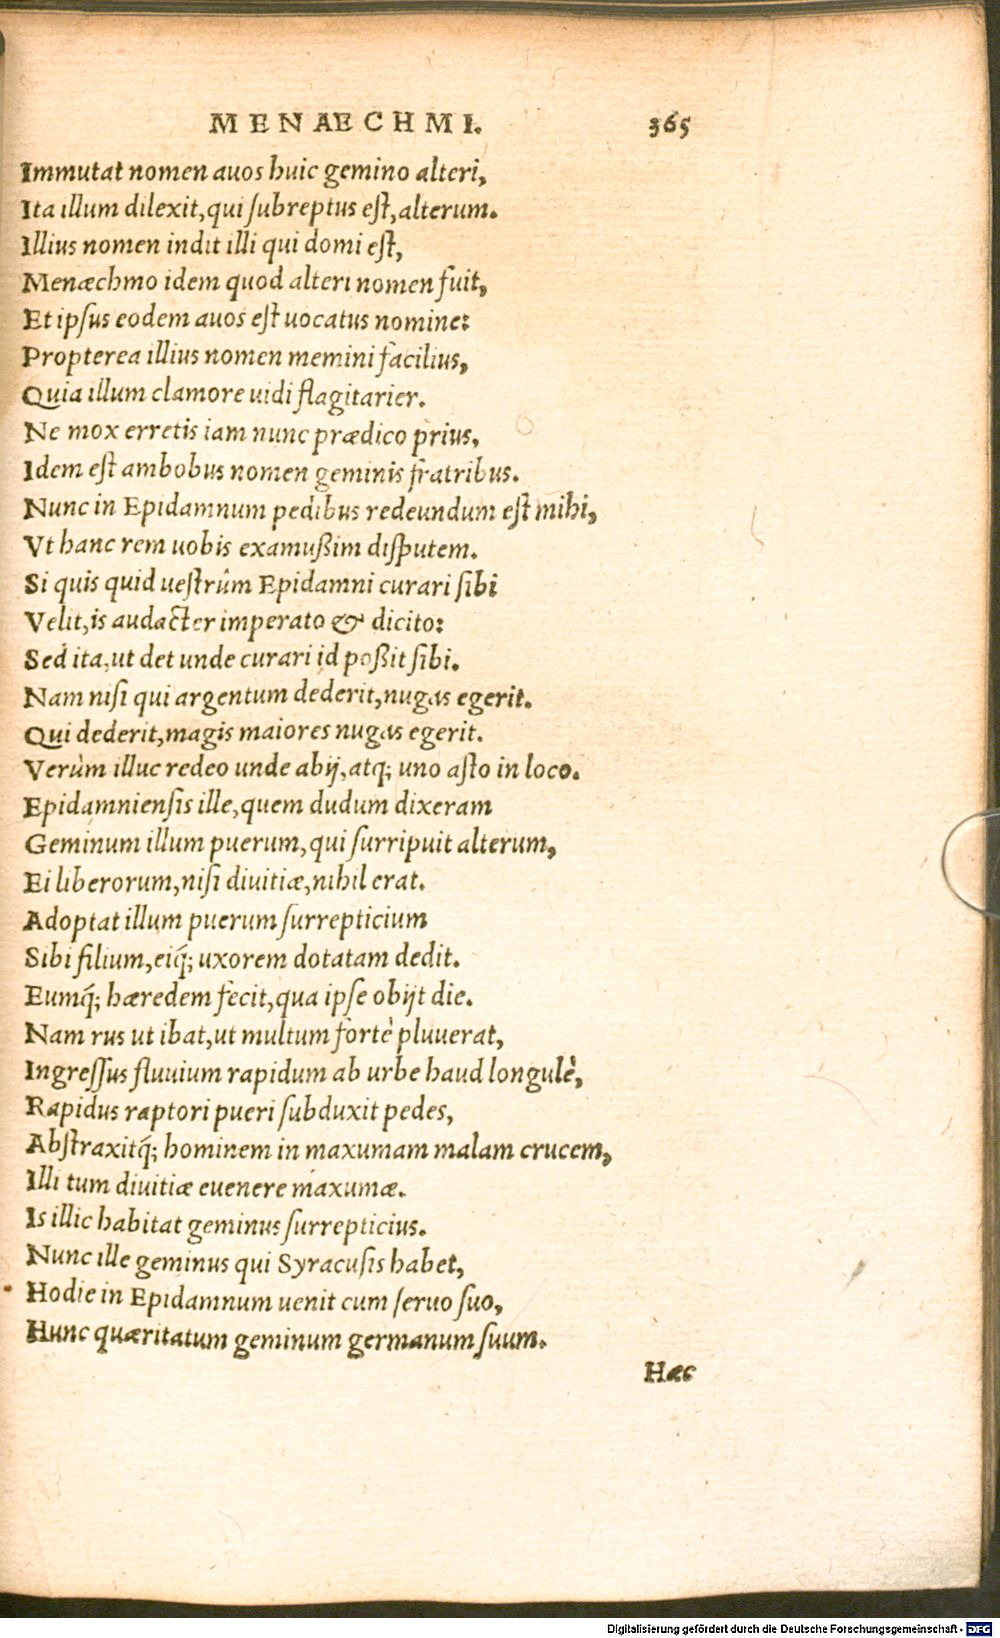 MENAECHMI. 365
Immutat nomen auos huic gemino alteri,
Ita illum dilexit, qui subreptus est, alterum.
Illius nomen indit illi qui domi est,
Menæchmo idem quod alteri nomen fuit,
Et ipsus eodem auos est uocatus nomine:
Propterea illius nomen memini facilius,
Quia illum clamore uidi flagitarier.
Ne mox erretis iam nunc prædico prius,
Idem est ambobus nomen geminis fratribus.
Nunc in Epidamnum pedibus redeundum est mihi,
Vt hanc rem uobis examußim disputem.
Si quis quid uestrûm Epidamni curari sibi
Velit, is audacter imperato & dicito:
Sed ita, ut det unde curari id poßit sibi.
Nam nisi qui argentum dederit, nugas egerit.
Qui dederit, magis maiores nugas egerit.
Verùm illuc redeo unde abij, atq; uno asto in loco.
Epidamniensis ille, quem dudum dixeram
Geminum illum puerum, qui surripuit alterum,
Ei liberorum, nisi diuitiæ, nihil erat.
Adoptat illum puerum surrepticium
Sibi filium, eiq́; uxorem dotatam dedit.
Eumq́; hæredem fecit, qua ipse obijt die.
Nam rus ut ibat, ut multum fortè pluuerat,
Ingressus fluuium rapidum ab urbe haud longulè,
Rapidus raptori pueri subduxit pedes,
Abstraxitq́; hominem in maxumam malam crucem,
Illi tum diuitiæ euenere maxumæ.
Is illic habitat geminus surrepticius.
Nunc ille geminus qui Syracusis habet,
Hodie in Epidamnum uenit cum seruo suo,
Hunc quæritatum geminum germanum suum.
Hæc
Digitalisierung gefördert durch die Deutsche Forschungsgemeinschaft - DFG